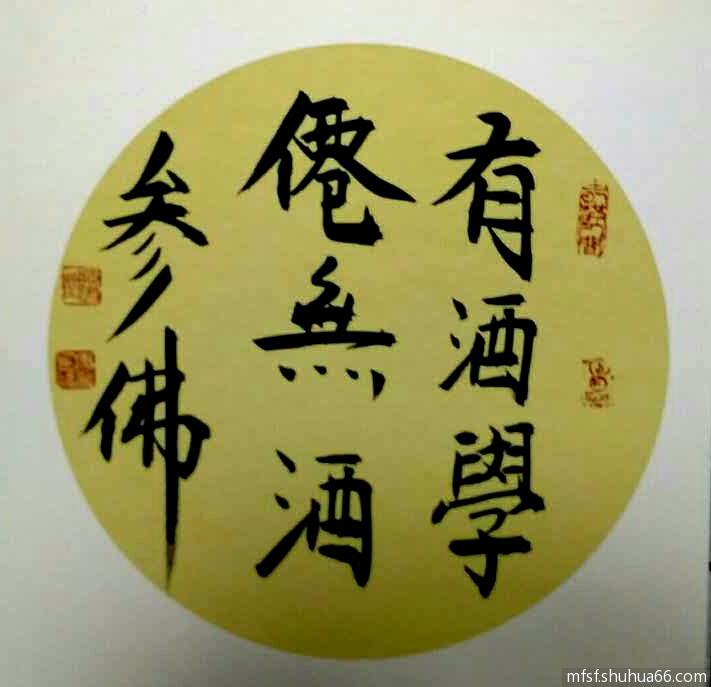 有酒學
僊無酒
参佛
mfsf.shuhua66.com